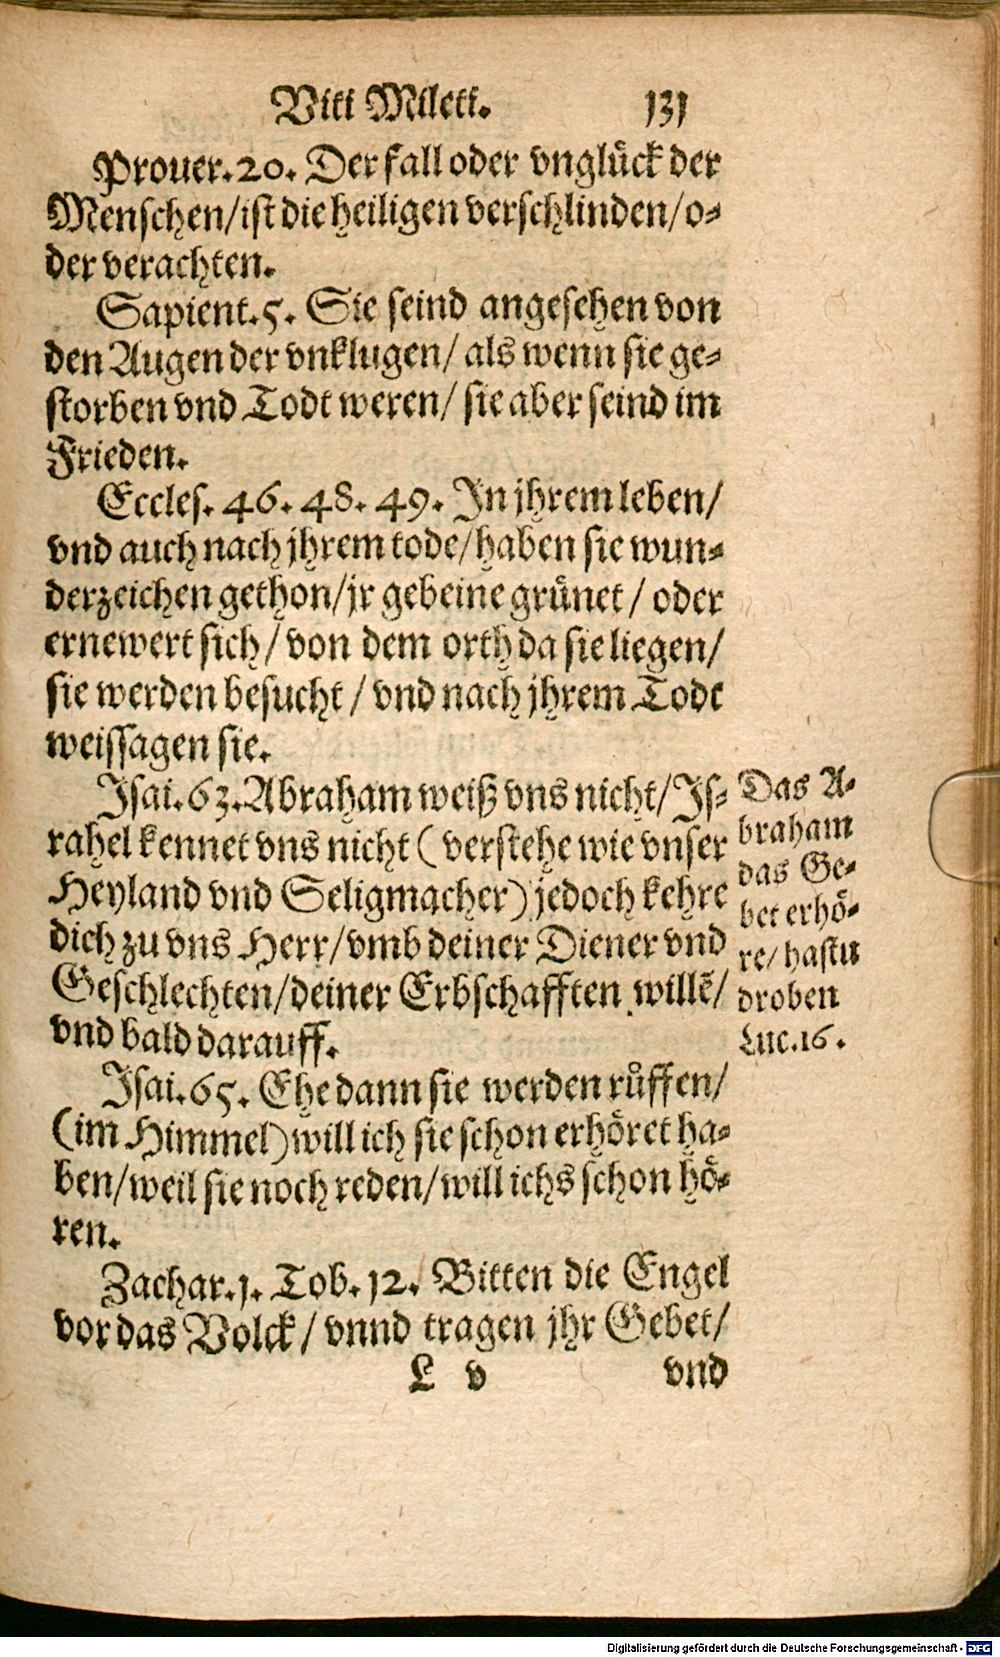 Viti Mileti. 131
Prouer.20. Der fall oder vnglück der
Menschen/ist die heiligen verschlinden/o-
der verachten.
Sapient.5. Sie seind angesehen von
den Augen der vnklugen/ als wenn sie ge-
storben vnd Todt weren/ sie aber seind im
Frieden.
Eccles. 46. 48. 49. In jhrem leben/
vnd auch nach jhrem tode/haben sie wun-
derzeichen gethon/jr gebeine grünet / oder
ernewert sich / von dem orth da sie liegen/
sie werden besucht / vnd nach jhrem Todt
weissagen sie.
Isai.63. Abraham weiß vns nicht/Is-
rahel kennet vns nicht ( verstehe wie vnser
Heyland vnd Seligmacher) jedoch kehre
dich zu vns Herr/vmb deiner Diener vnd
Geschlechten/deiner Erbschafften willē/
vnd bald darauff.
Das A-
braham
das Ge-
bet erhö-
re/ hastu
droben
Luc.16.
Isai.65. Ehe dann sie werden růffen/
(im Himmel) will ich sie schon erhöret ha-
ben/weil sie noch reden/will ichs schon hö-
ren.
Zachar.1. Tob. 12. Bitten die Engel
vor das Volck / vnnd tragen jhr Gebet/
L v vnd
Digitalisierung gefördert durch die Deutsche Forschungsgemeinschaft - DFG